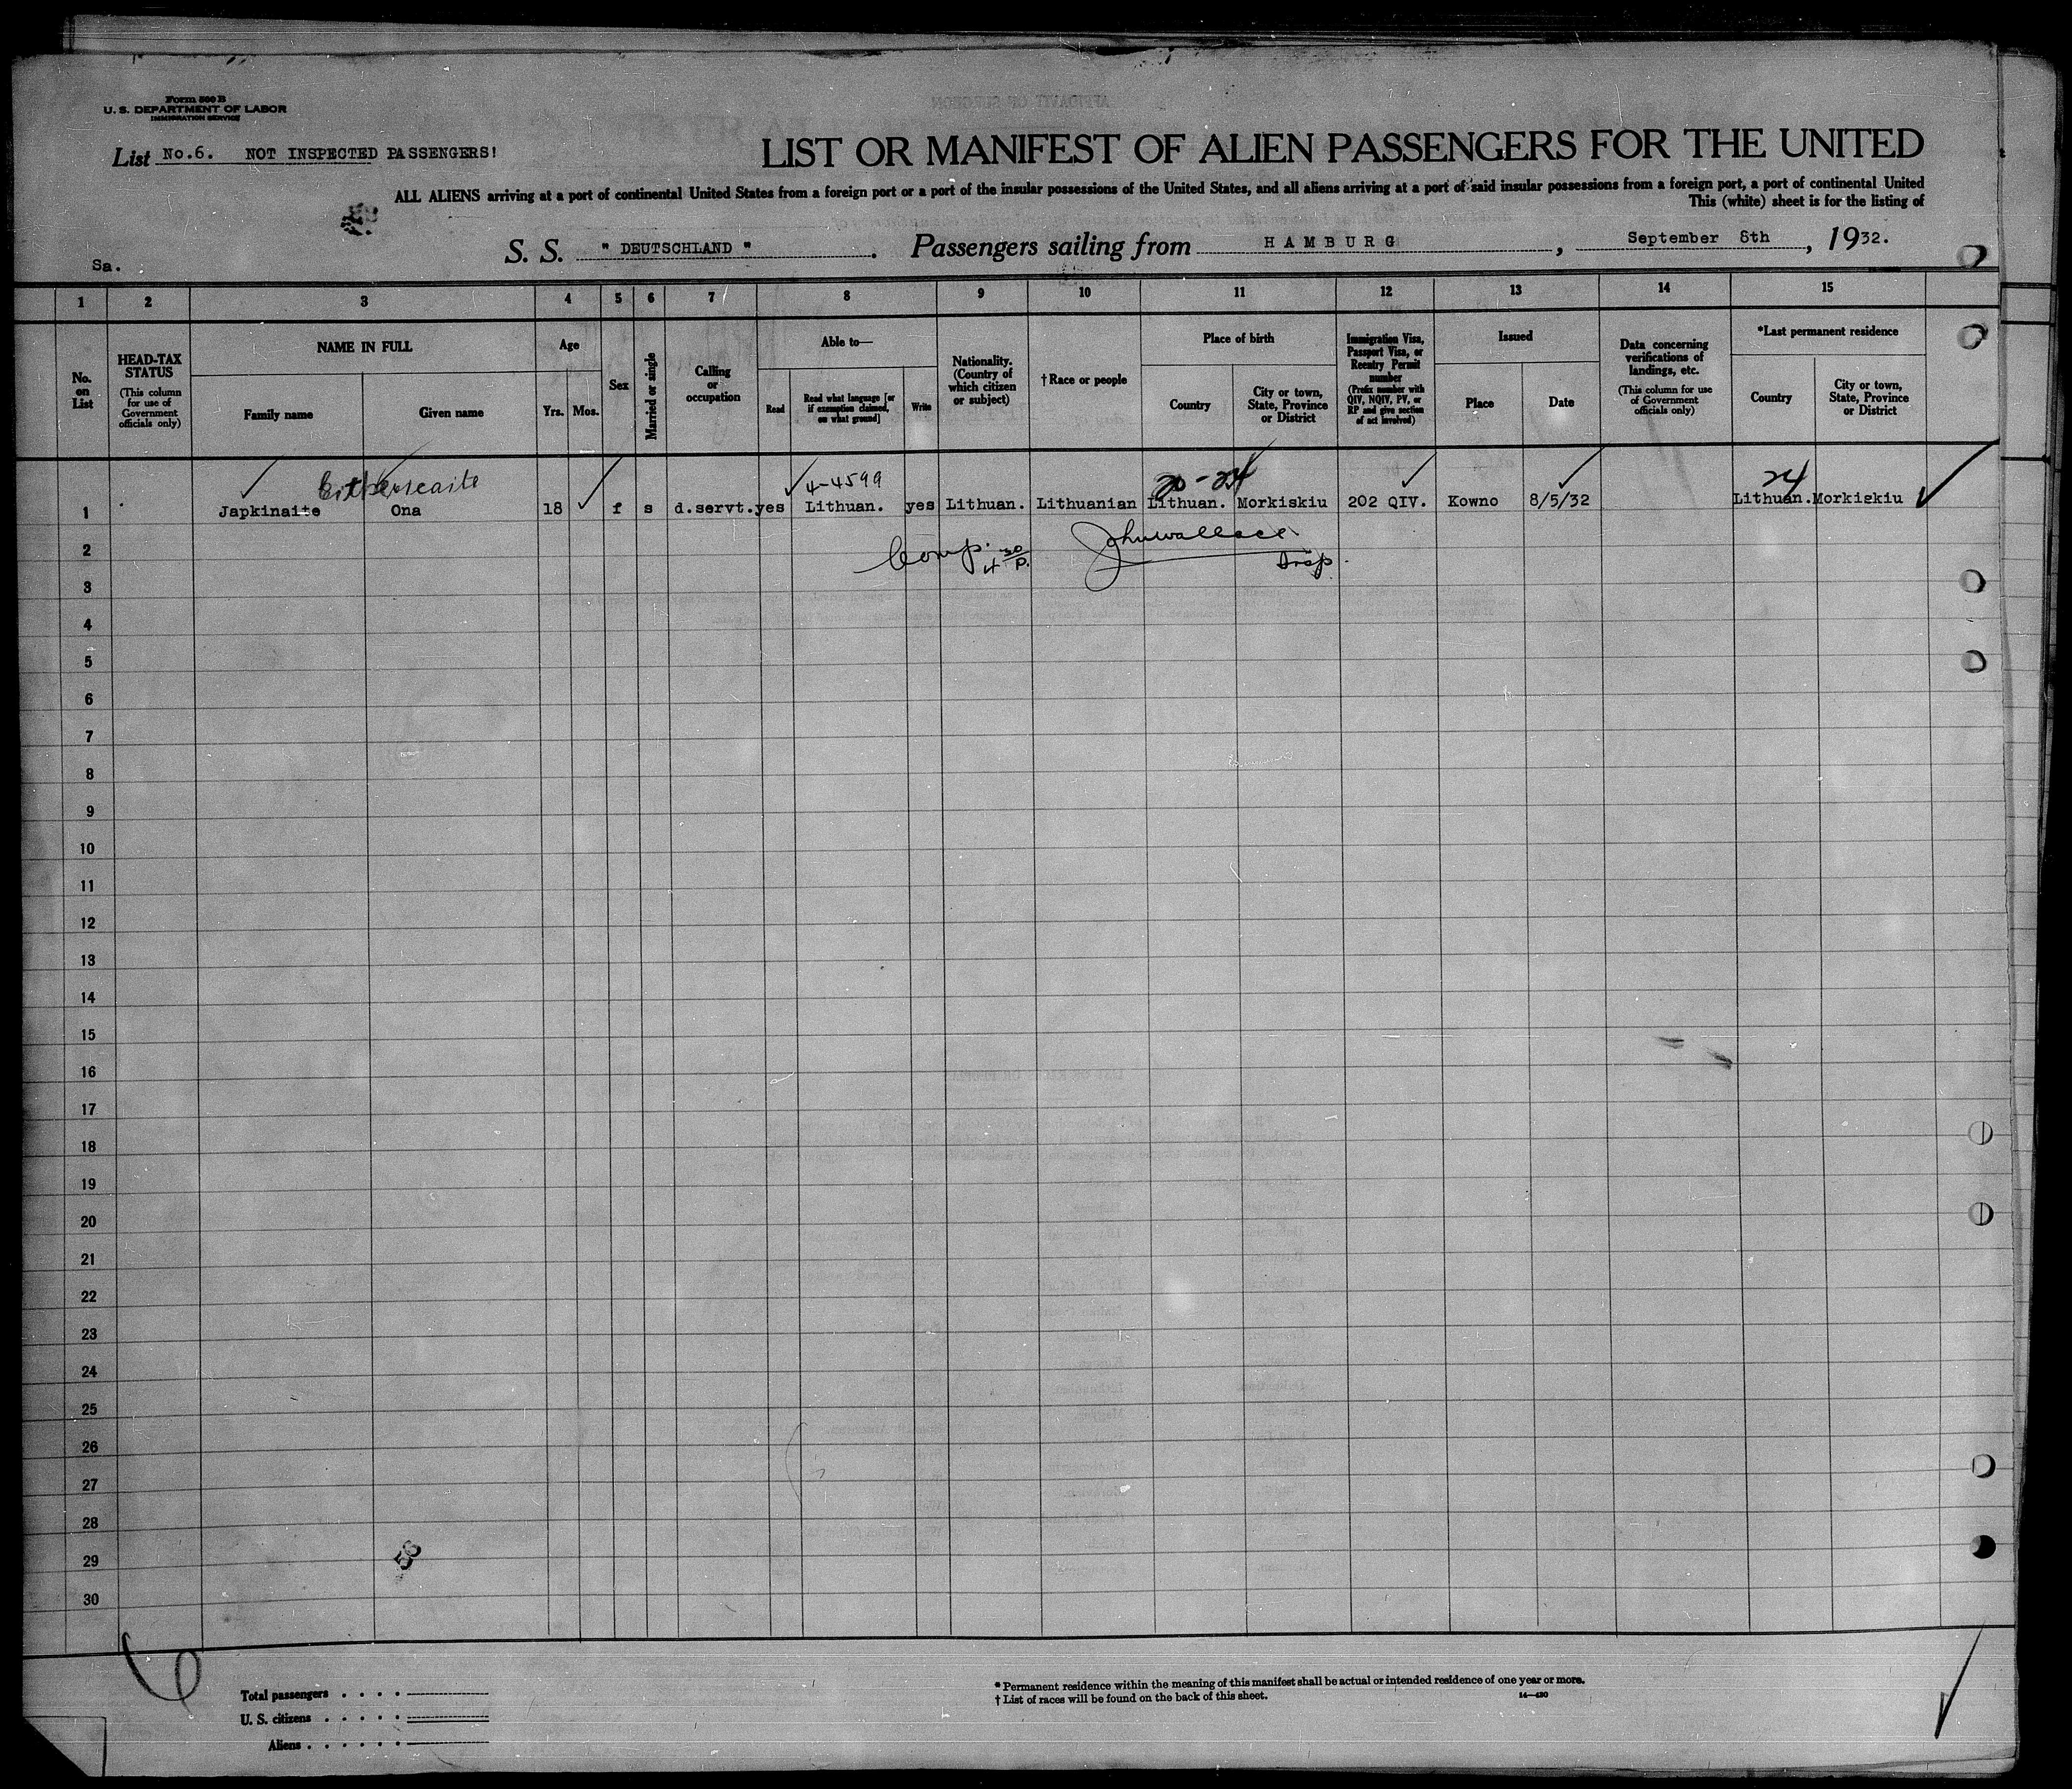 Form 500 B
U. S. DEPARTMENT OF LABOR
IMMIGRATION SERVICE
List No.6. NOT INSPECTED PASSENGERS!
LIST OR MANIFEST OF ALIEN PASSENGERS FOR THE UNITED
ALL ALIENS arriving at a port of continental United States from a foreign port or a port of the insular possessions of the United States, and all aliens arriving at a port of said insular possessions from a foreign port, a port of continental United
This (white) sheet is for the listing of
S. S. " DEUTSCHLAND ". Passengers sailing from HAMBURG, September 8th, 1932.
Sa.
1 2 3 4 5 6 7 8 9 10 11 12 13 14 15
No. on List
HEAD-TAX STATUS (This column for use of Government officials only)
NAME IN FULL
Family name Given name
Age
Yrs. Mos.
Sex
Married or single
Calling or occupation
Able to—
Read Read what language [or if exemption claimed, on what ground] Write
Nationality. (Country of which citizen or subject)
†Race or people
Place of birth
Country City or town, State, Province or District
Immigration Visa, Passport Visa, or Reentry Permit number (Prefix number with QIV, NQIV, PV, or RP and give section of act involved)
Issued
Place Date
Data concerning verifications of landings, etc. (This column for use of Government officials only)
*Last permanent residence
Country City or town, State, Province or District
4-4599 20-24 24
1 Japkinaite Ona 18 f s d.servt. yes Lithuan. yes Lithuan. Lithuanian Lithuan. Morkiskiu 202 QIV. Kowno 8/5/32 Lithuan. Morkiskiu
2 Comp. John Wallace
3
4
5
6
7
8
9
10
11
12
13
14
15
16
17
18
19
20
21
22
23
24
25
26
27
28
29
30
Total passengers . . . .
U. S. citizens . . . . .
Aliens . . . . . .
* Permanent residence within the meaning of this manifest shall be actual or intended residence of one year or more.
† List of races will be found on the back of this sheet. 14—430